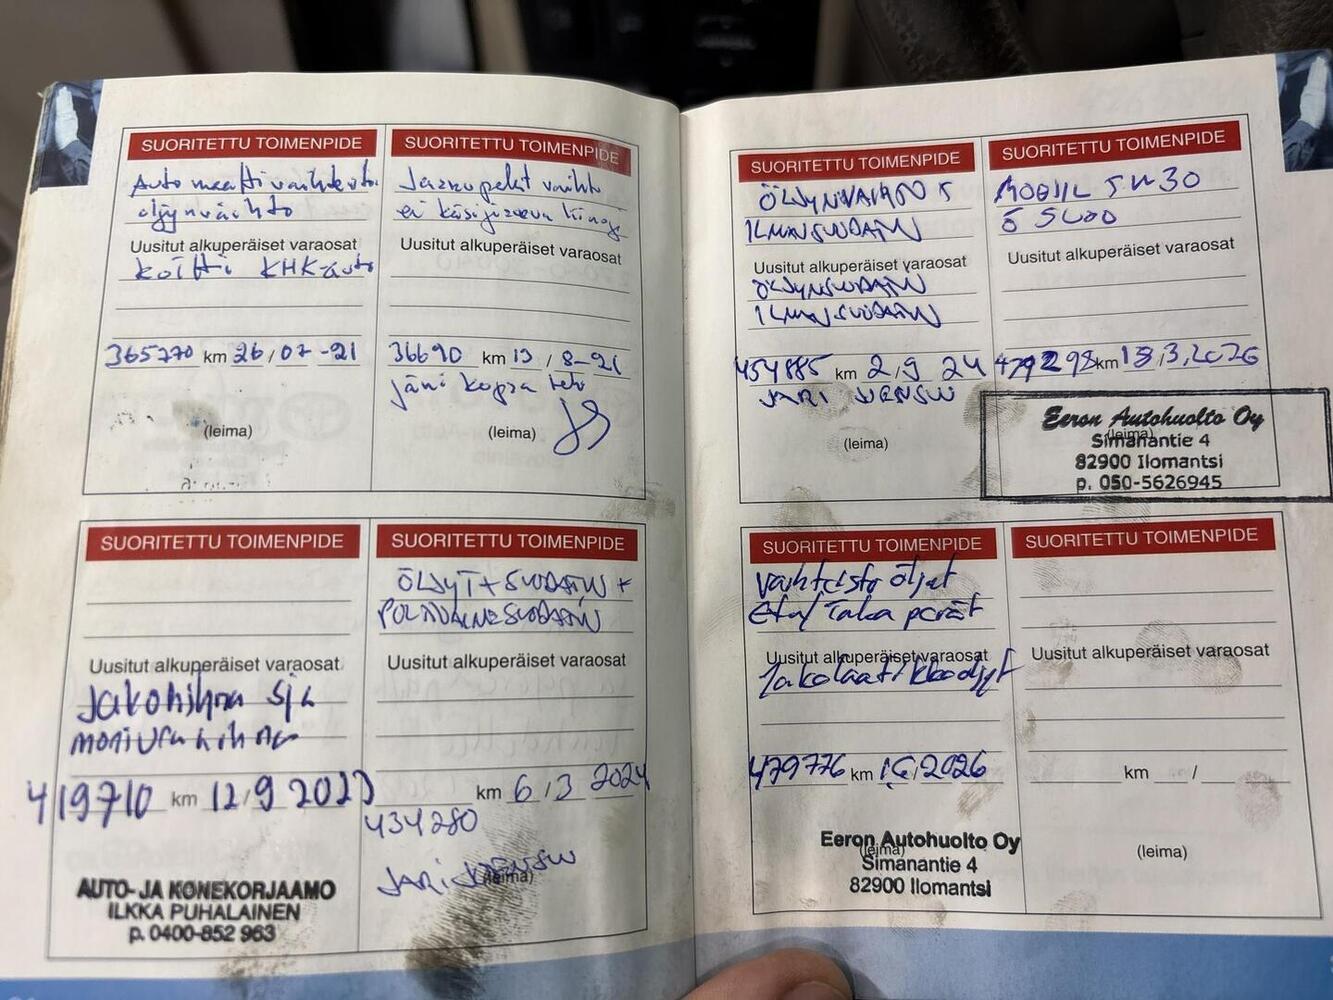 SUORITETTU TOIMENPIDE
Automaattivaihteisto
öljynvaihto
Uusitut alkuperäiset varaosat
KHK-auto
365770 km 26/07-21
(leima)
SUORITETTU TOIMENPIDE
Jarrupalat vaihto
Uusitut alkuperäiset varaosat
36690 km 13/8-21
(leima)
SUORITETTU TOIMENPIDE
Uusitut alkuperäiset varaosat
Jakohihna sja
moniurahihna
419710 km 12/9 202
AUTO- JA KONEKORJAAMO
ILKKA PUHALAINEN
p. 0400-852 963
SUORITETTU TOIMENPIDE
ÖLJYT + SUODATIN +
POLTTOAINESUODATIN
Uusitut alkuperäiset varaosat
km 6/3 2024
434280
JARI
(leima)
SUORITETTU TOIMENPIDE
ÖLJYNVAIHTO
ILMANSUODATIN
Uusitut alkuperäiset varaosat
ÖLJYNSUODATIN
ILMANSUODATIN
454885 km 2,9 24
JARI
(leima)
SUORITETTU TOIMENPIDE
MOBIIL 5W30
Uusitut alkuperäiset varaosat
479298 km 13,3,2026
(leima)
Eeron Autohuolto Oy
Simanantie 4
82900 Ilomantsi
p. 050-5626945
SUORITETTU TOIMENPIDE
Vaihteisto öljyt
Etu/Taka perät
Uusitut alkuperäiset varaosat
Jakolaatikkoöljyt
479776 km /2026
(leima)
Eeron Autohuolto Oy
Simanantie 4
82900 Ilomantsi
SUORITETTU TOIMENPIDE
Uusitut alkuperäiset varaosat
km /
(leima)